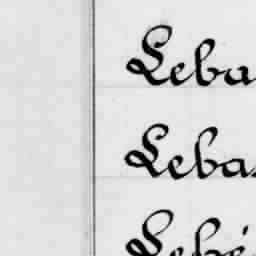 Leba
Lebas
Lebé